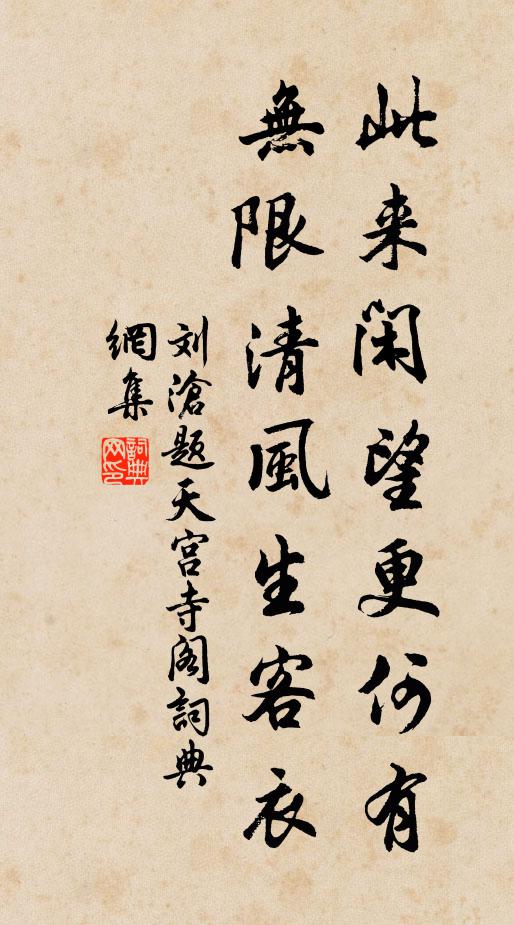 此来闲望更何有
無限清風生客衣
刘滄题天宫寺阁詞典
網集
詞典网印